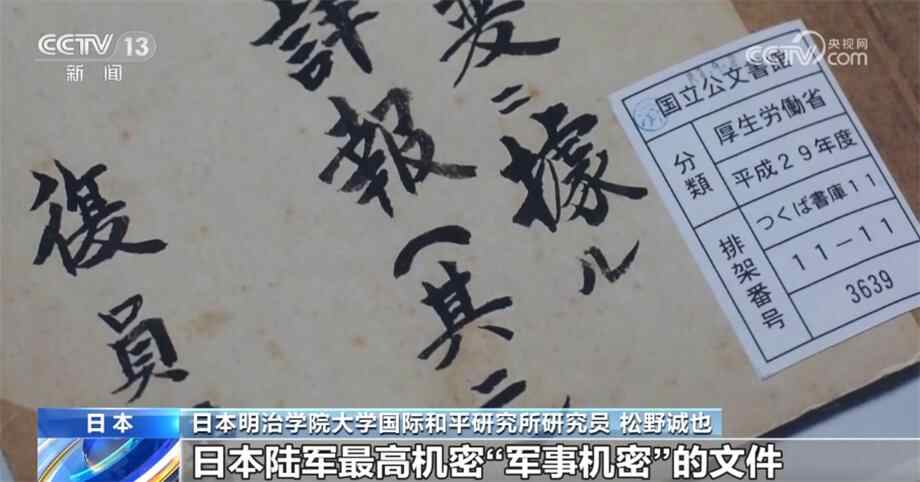 CCTV 13
新闻
央视网
CCTV.com
変ニ據ル
詳報(其二
復員
国立公文書館
分類
厚生労働省
平成29年度
排架番号
つくば書庫11
11-11
3639
日本
日本明治学院大学国际和平研究所研究员 松野诚也
日本陆军最高机密“军事机密”的文件